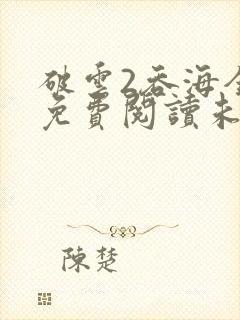 破雲2吞海全
免費閱讀未
陳楚